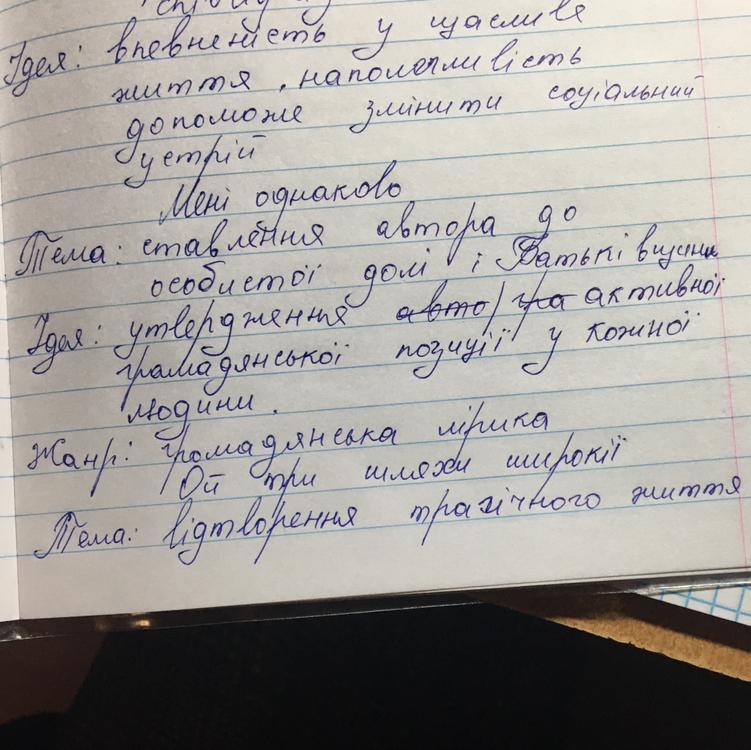 Ідея: впевненість у щасливе
життя, наполегливість
допоможе змінити соціальний
устрій
Мені однаково
Тема: ставлення автора до
особистої долі і Батьківщини
Ідея: утвердження авто гра активної
грамадянської позиції у кожної
людини.
Жанр: громадянська лірика
Ой три шляхи широкії
Тема: відтворення трагічного життя